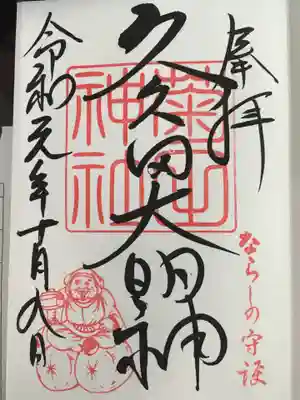 奉拝
菊田
神社
久々田大明神
令和元年十月九日
ならしの守護